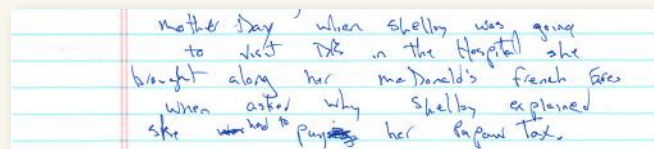 mother Day, when Shelby was going
to visit in the Hospital she
brought along her McDonald's french fries
when asked why Shelby explained
she had to pay her Papaw Tax.